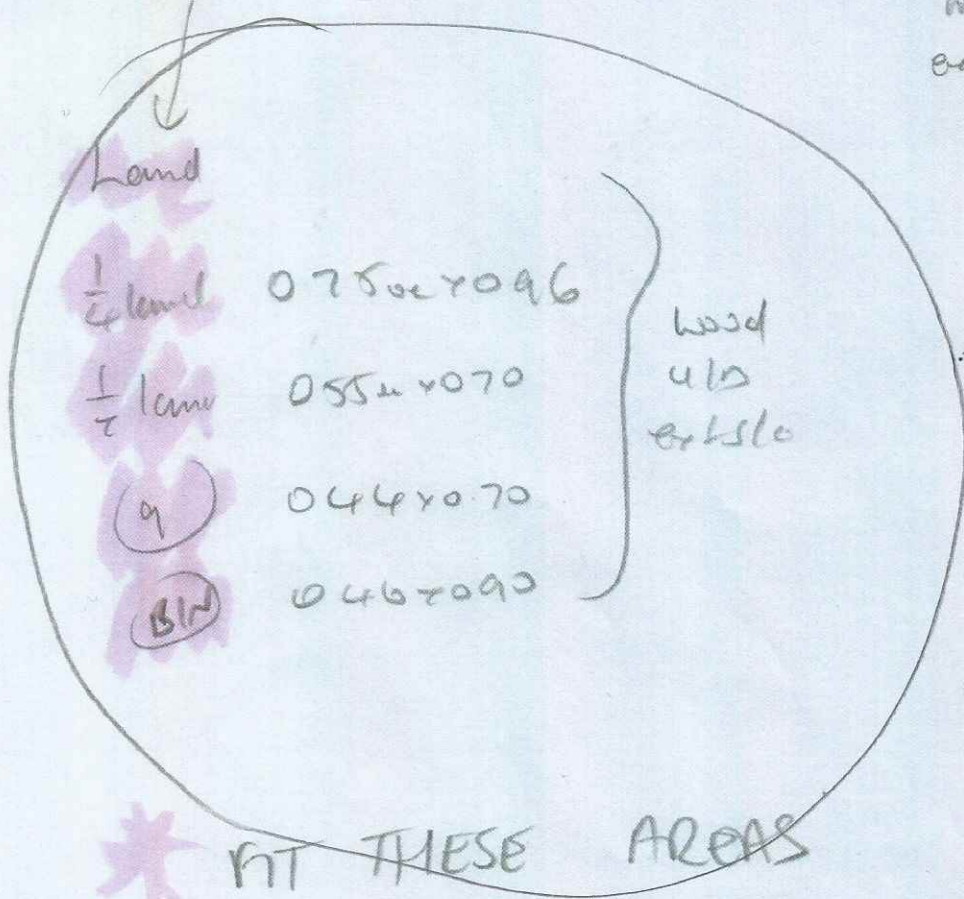 Land
1/4 land 075 x 096
1/2 land 055 x 070
9 044 x 0.70
B/N 046 x 090
Wood
u/D
FIT THESE AREAS